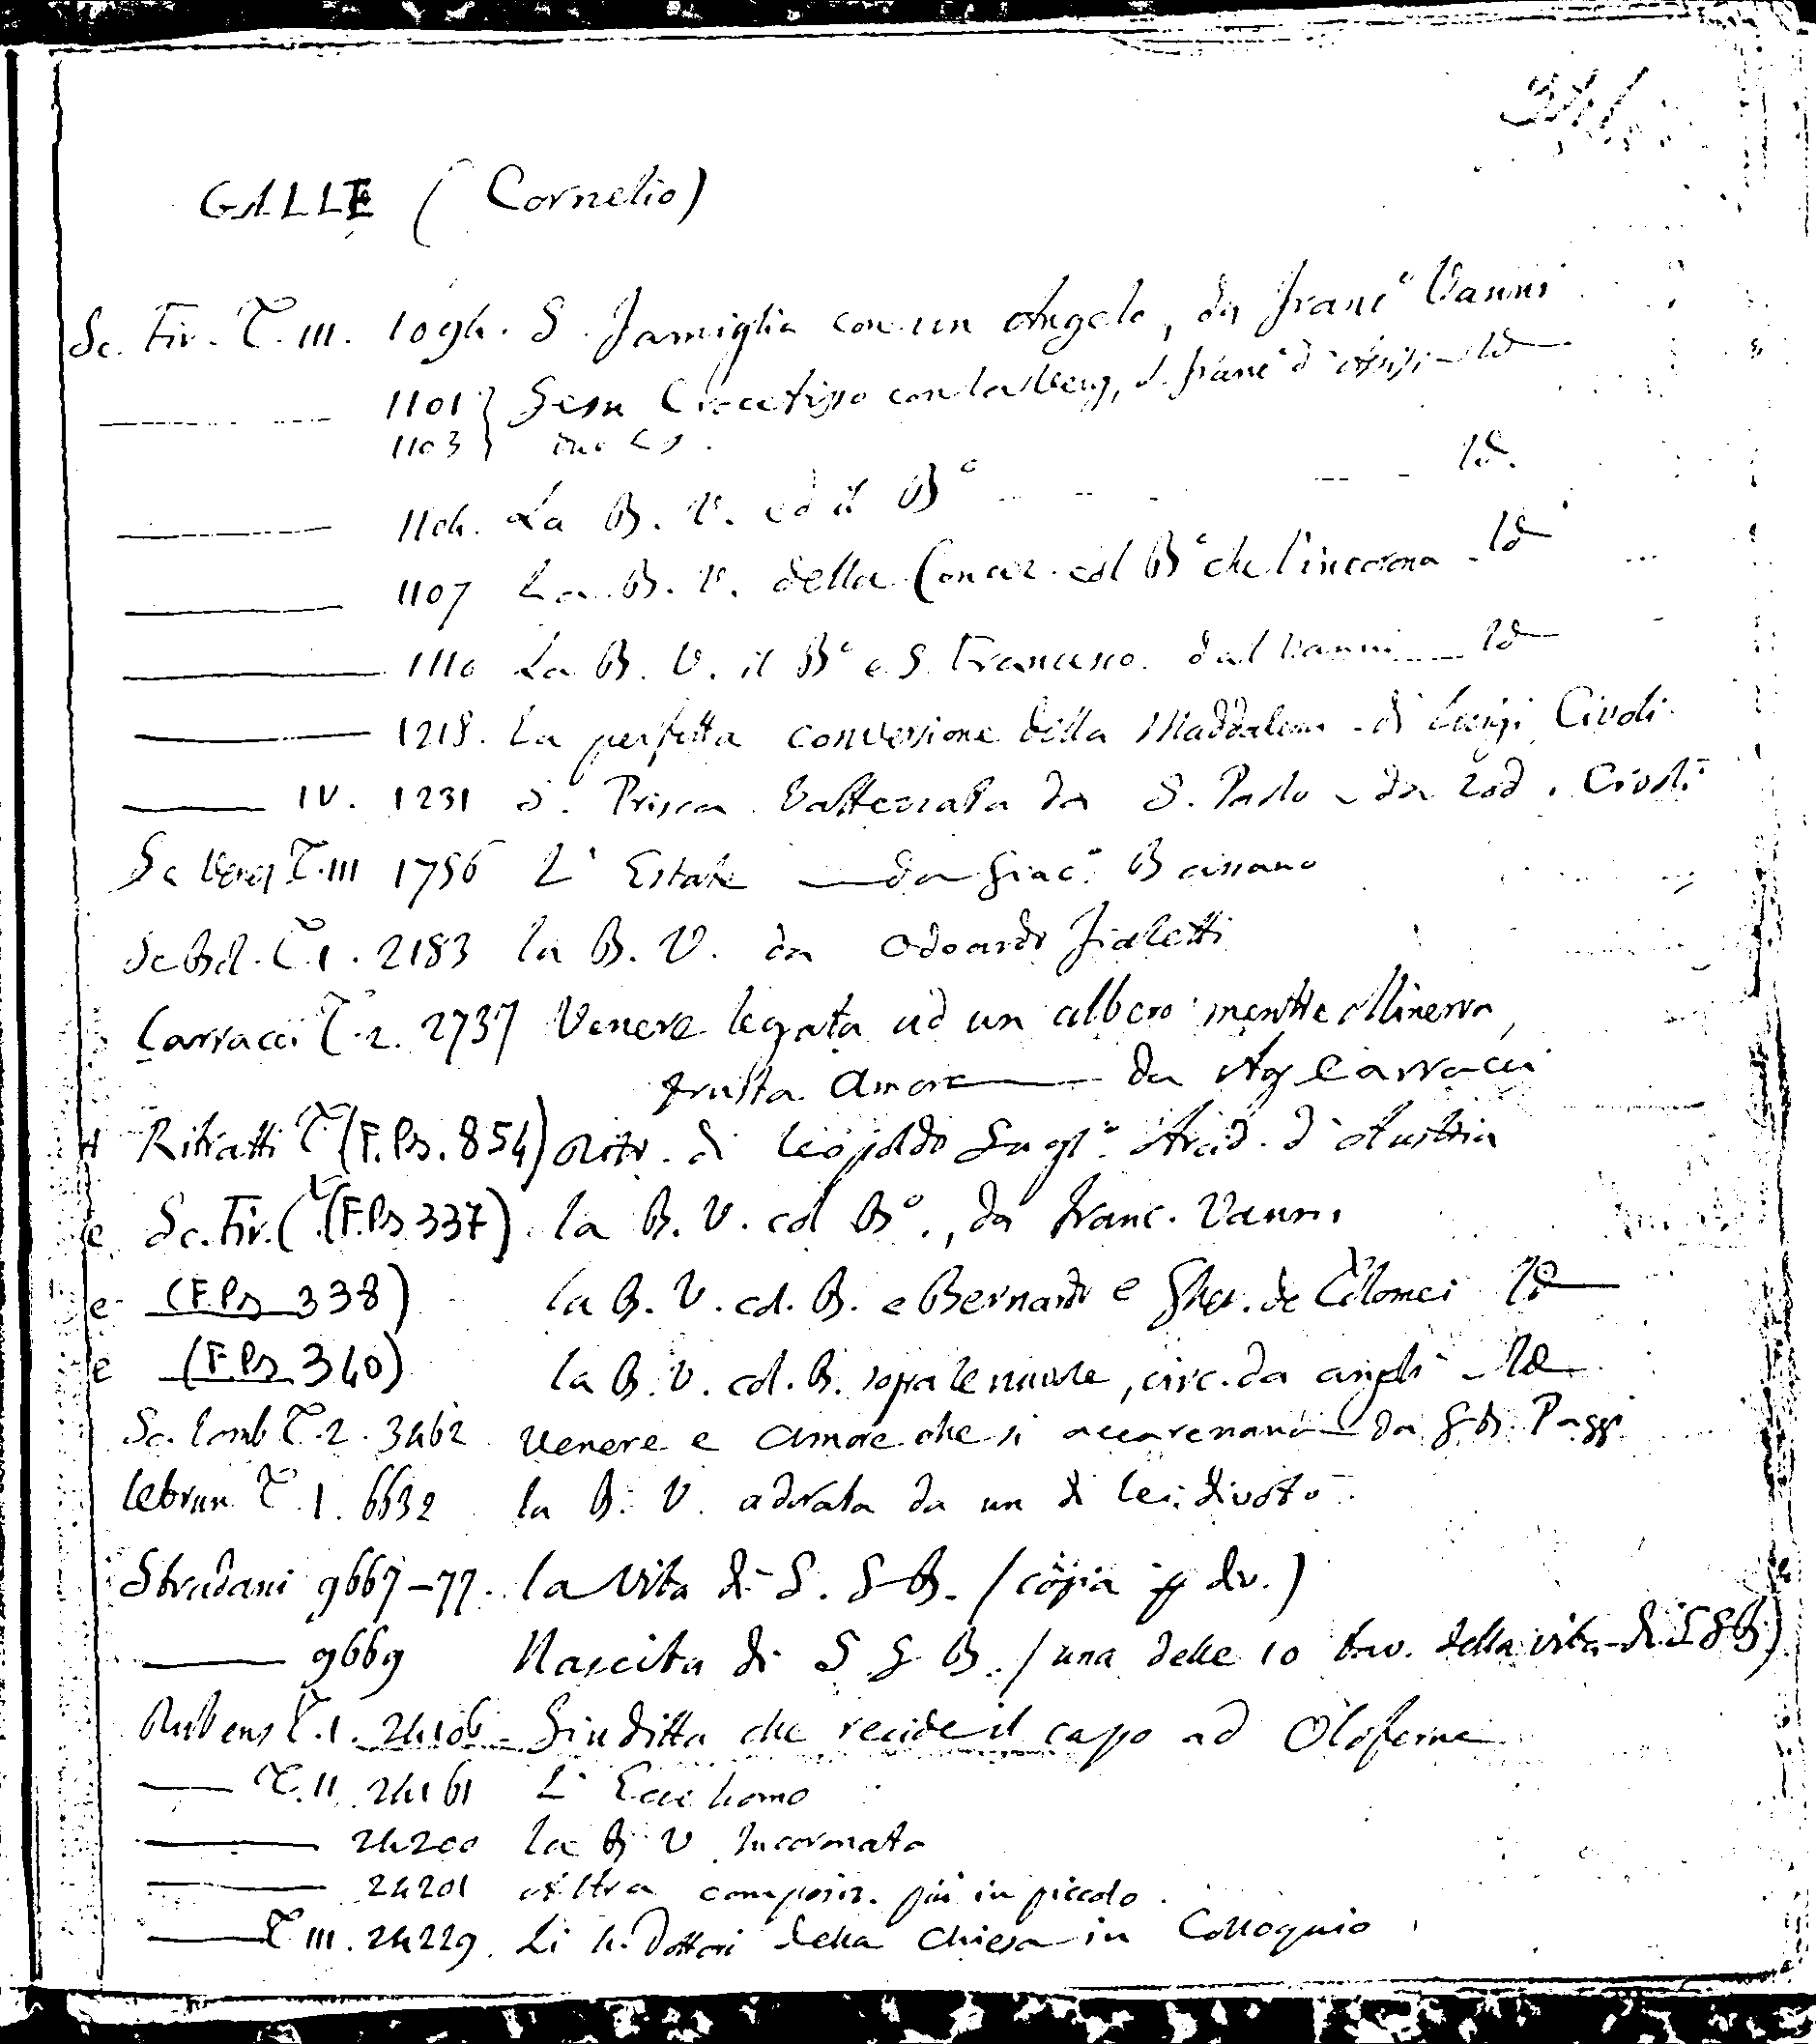 GALLE (Cornelio)
Sc. Fir. T. III. 1094. S. Famiglia con un Angelo, da Franc.º Vanni
1101 } Gesu Crocefisso con la Verg, S. Franc.º d'Assisi - Id
1103 }
1104. La B. V. ed il B.º - - - Id.
1107 La B. V. della Concez. col B.º che l'incorona - Id
1110 La B. V. il B.º e S. Francesco. dal Vanni Id
1218. La perfetta conversione della Maddalena - di Luigi Civoli
IV. 1231 S. Prisca battezzata da S. Paolo - da Lod. Civoli
Sc Venez T. III 1756 L'Estate da Giac.º Bassano
Sc Bol. T. 1. 2183 la B. V. da Odoardo Fialetti
Carracci T. 2. 2737 Venere legata ad un albero mentre Minerva,
frusta Amore da Ag Carracci
Ritratti T (F. Ps. 854) Ritr. di Leopoldo Gugl.º Arcid. d'Austria
e Sc. Fir. T. (F. Ps 337) la B. V. col B.º, da Franc. Vanni
e (F. Ps 338) la B. V. col. B. e Bernardo e de Tolomei Id
e (F. Ps 340) la B. V. col. B. sopra le nuvole, circ. da angeli - Id
Sc. Lomb T. 2. 3462 Venere e Amore che si accarezzano da G. B. Paggi
Lebrun T. 1. 6632 la B. V. adorata da un di lei divoto
Stradani 9667-77. la Vita di S. G. B. (copia div.)
9669 Nascita di S G B. (una delle 10 tav. della vita di S G B)
Rubens T. 1. 24106 - Giuditta che recide il capo ad Oloferne
T. II. 24161 L'Ecce homo
24200 la B V Incoronata
24201 Altra composiz. più in piccolo.
T III. 24229. Li 4. Dottori della Chiesa in Colloquio